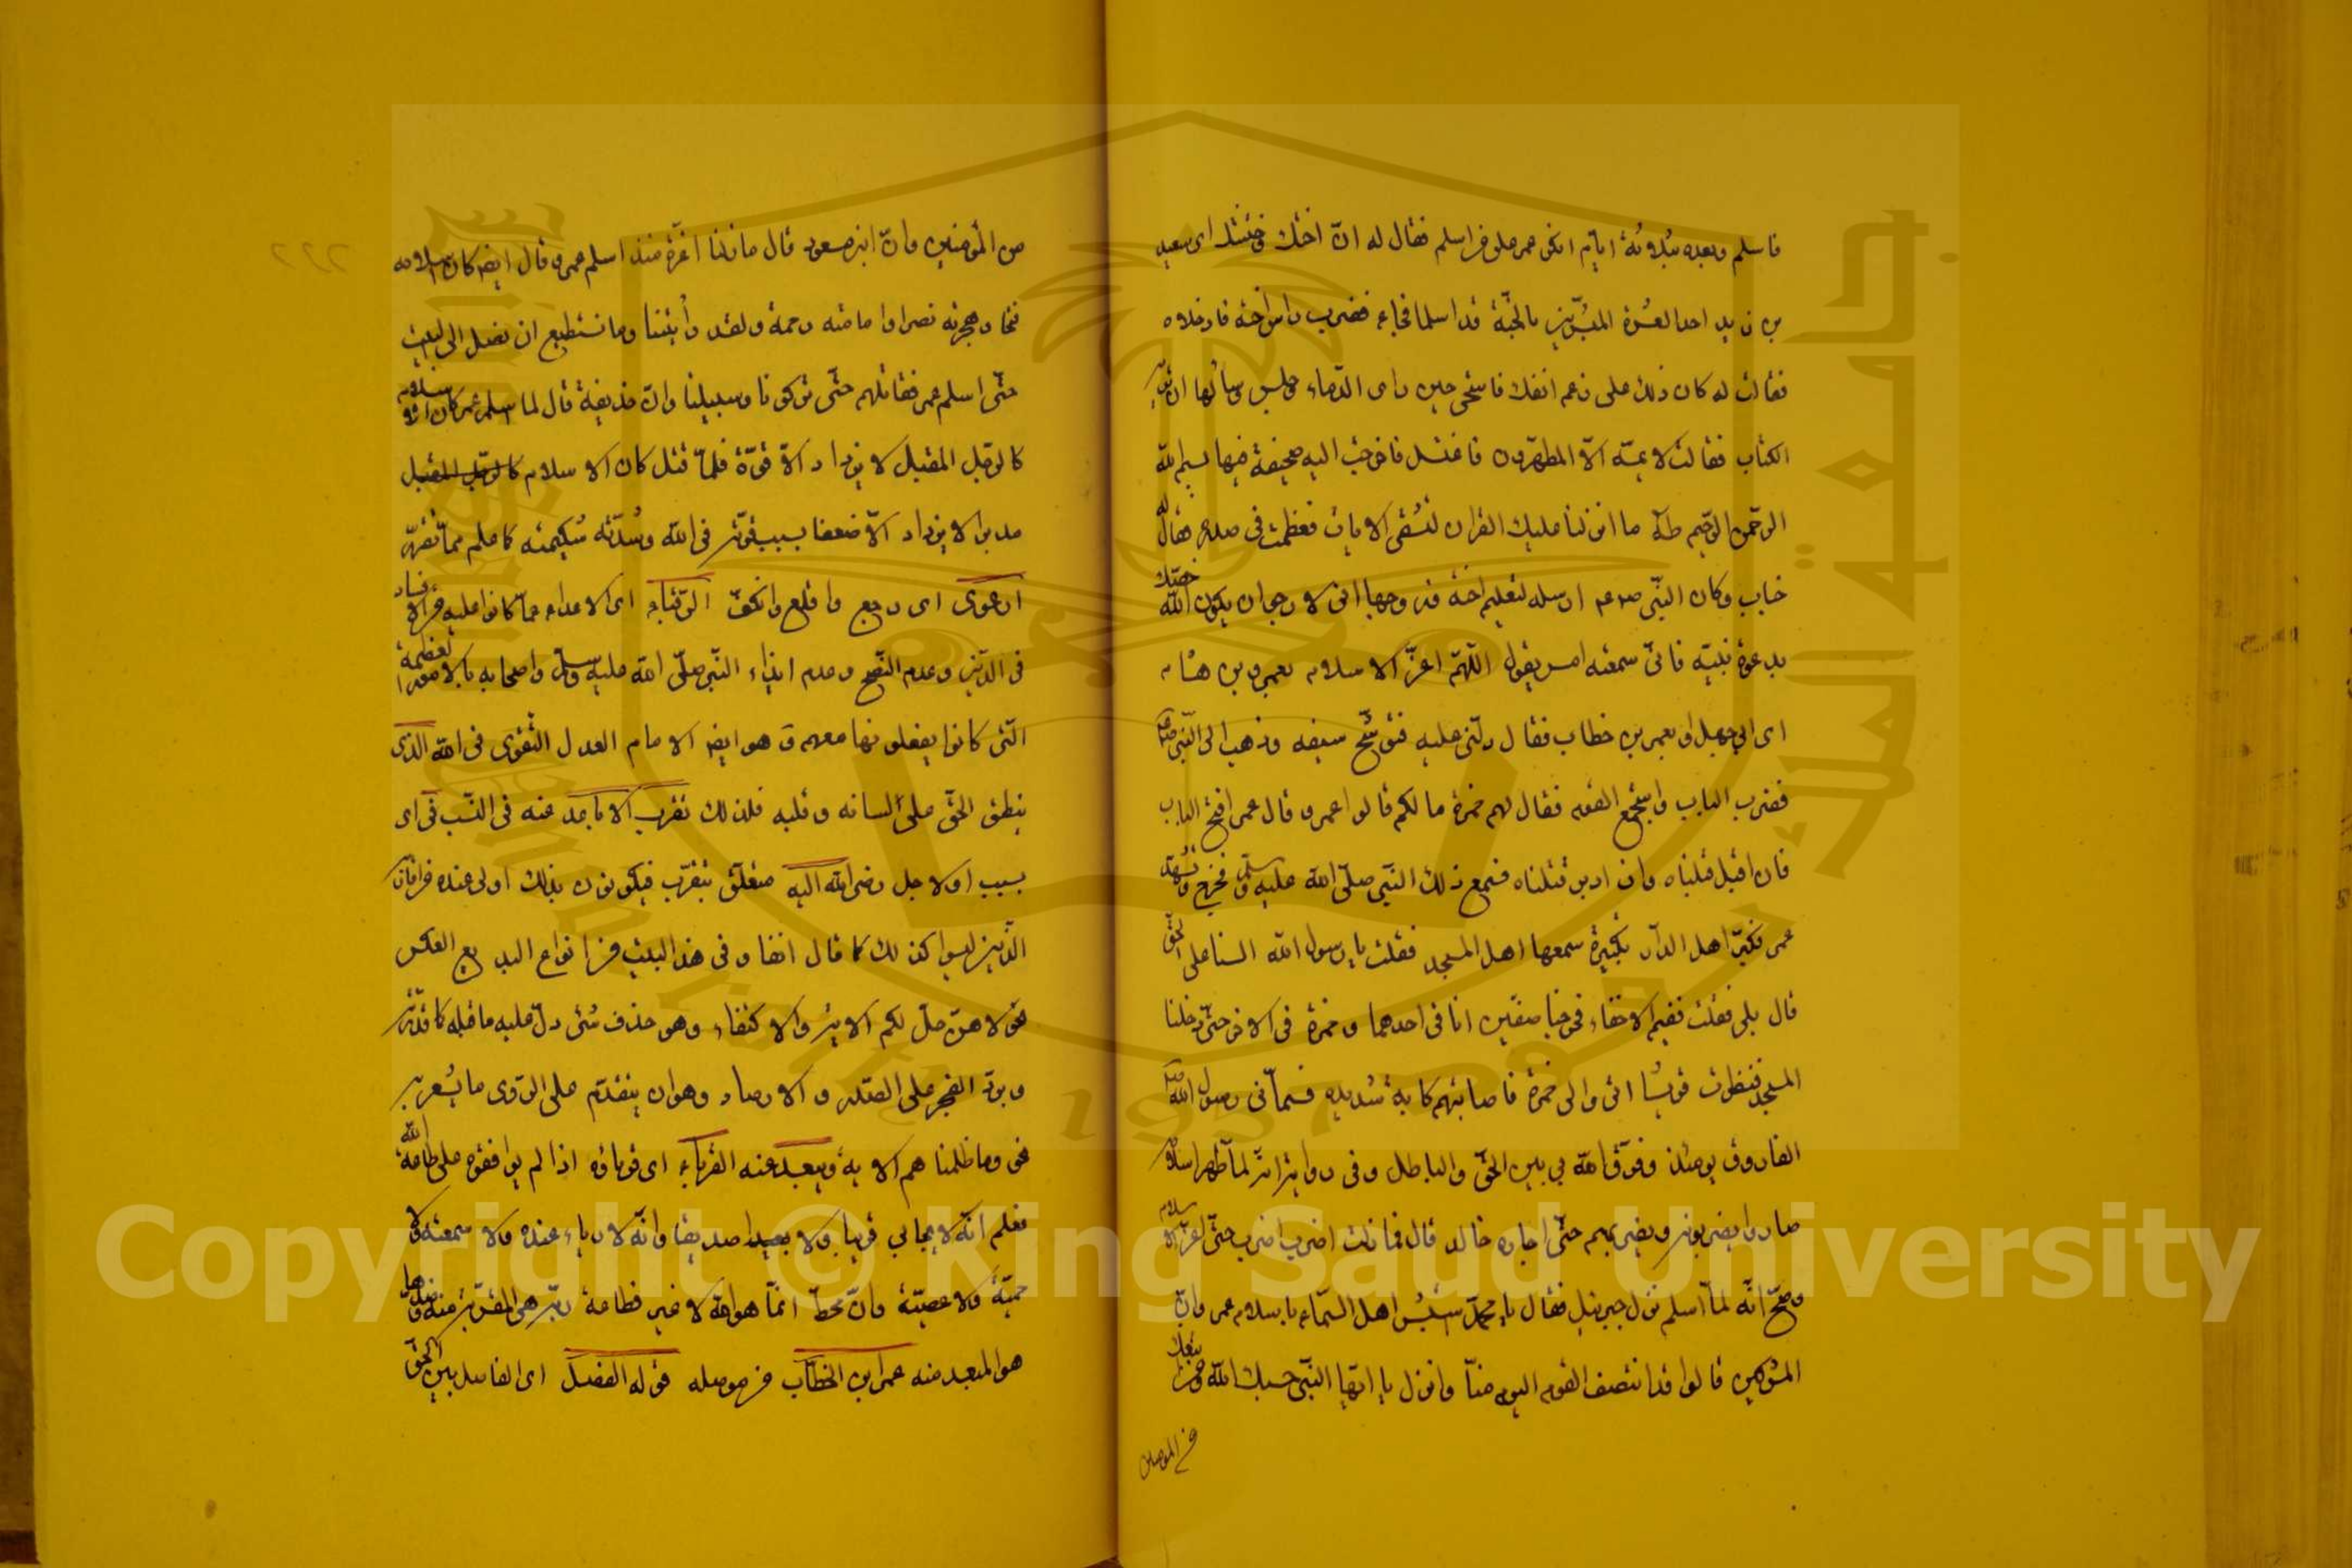 فاسلم وبعده بثلاثة ايام انكر عمر على من اسلم فقال له ان اختك وختنك اى سعيد
بن زيد احد العشرة المبشرين بالجنة قد اسلما فجاء فضرب راس اخته فادخلاه
فقالت له كان ذلك على زعم انفك فاستحى حين راى الدماء وجلس وسألها ان تريه
الكتاب فقالت لا يمسه الا المطهرون فاغتسل فاخرجت اليه صحيفة فيها بسم الله
الرحمن الرحيم طه ما انزلنا عليك القران لتشقى الايات فعظمت فى صدره فقال له
خباب وكان النبى صلعم ارسله لتعليم اخته وزوجها انى لارجو ان يكون الله خصك
بدعوة نبيه فانى سمعته امس يقول اللهم اعز الاسلام بعمرو بن هشام
اى ابى جهل او بعمر بن خطاب فقال دلنى عليه فتوشح سيفه وذهب الى النبى صلعم
فضرب الباب واستجمع القوم فقال لهم حمزة ما لكم قالوا عمر قال عمر افتح الباب
فان اقبل قبلناه وان ادبر قتلناه فسمع ذلك النبى صلى الله عليه وسلم فخرج وتشهد
عمر فكبر اهل الدار تكبيرة سمعها اهل المسجد فقلت يا رسول الله السنا على الحق
قال بلى فقلت ففيم الاخفاء فخرجنا صفين انا فى احدهما وحمزة فى الاخر حتى دخلنا
المسجد فنظرت قريش الى والى حمزة فاصابتهم كابة شديدة فسمانى رسول الله صلعم
الفاروق يومئذ وفرق الله بى بين الحق والباطل وفى رواية انه لما ظهر اسلامه
صاروا يضربونه ويضربهم حتى اجاره خالد قال فما زلت اضرب اضرب حتى اعز الاسلام
وصح انه لما اسلم نزل جبريل فقال يا محمد استبشر اهل السماء باسلام عمر وان
المشركين قالوا قد انتصف القوم اليوم منا وانزل يا ايها النبى حسبك الله ومن اتبعك
من المؤمنين
من المؤمنين وان ابن مسعود قال ما زلنا اعزة منذ اسلم عمر وقال ايضا كان اسلامه
فتحا وهجرته نصرا وامامته رحمة ولقد رأيتنا وما نستطيع ان نصل الى البيت
حتى اسلم عمر فقاتلهم حتى تركونا وسبيلنا وان حذيفة قال لما اسلم عمر كان الاسلام
كالرجل المقبل لا يزداد الا قوة فلما قتل كان الاسلام كالرجل المقبل
مدبرا لا يزداد الا ضعفا بسبب قوته فى الله وشدته شكيمته كما علم مما تقرر
ارعوى اى رجع واقلع وانكف الرقباء اى الاعداء عما كانوا عليه من الافساد
فى الدين وعدم النصح وعدم ايذاء النبى صلى الله عليه وسلم واصحابه بالامور العظيمة
التى كانوا يفعلونها معهم و هو ايضا الامام العدل التقوى فى الله الذى
ينطق الحق على لسانه وقلبه فلذلك تقرب الاباعد عنه فى النسب فى اى
بسبب او لاجل رضى الله اليه متعلق بتقرب فيكونون بذلك اولى عنده من اقاربه
الذين ليسوا كذلك كما قال انفا وفى هذا البيت من انواع البديع العكس
نحو لا هن حل لكم الاية والاكتفاء وهو حذف شئ دل عليه ما قبله كما قدرته
ورد العجز على الصدر والارصاد وهو ان يتقدم على الروى ما يشعر به
نحو وما ظلمناهم الاية ويبعد عنه القرباء اى قرباؤه اذا لم يوافقوه على طاعة الله
فعلم انه لا يحابى قريبا ولا بعيدا صديقا وانه لا رياء عنده ولا سمعة ولا
حمية ولا عصبية وان محط انما هو الله لا غير فطاعة ربه هى المقربة منه وضدها
هو المبعد منه عمر ابن الخطاب من موصله قوله الفصل اى الفاصل بين الحق
Copyright © King Saud University
1957